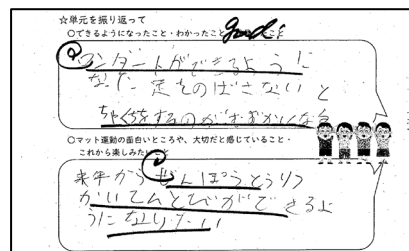 ☆単元を振り返って
○できるようになったこと・わかったこと
good
ロンダートができるように
なった 足をのばさないと
ちゃくちをするのがむずかしくなる
○マット運動の面白いところや、大切だと感じていること・
これから楽しみたいこと
来年から ぜんぽうとうりつ
かいてんとびができるよ
うになりたい